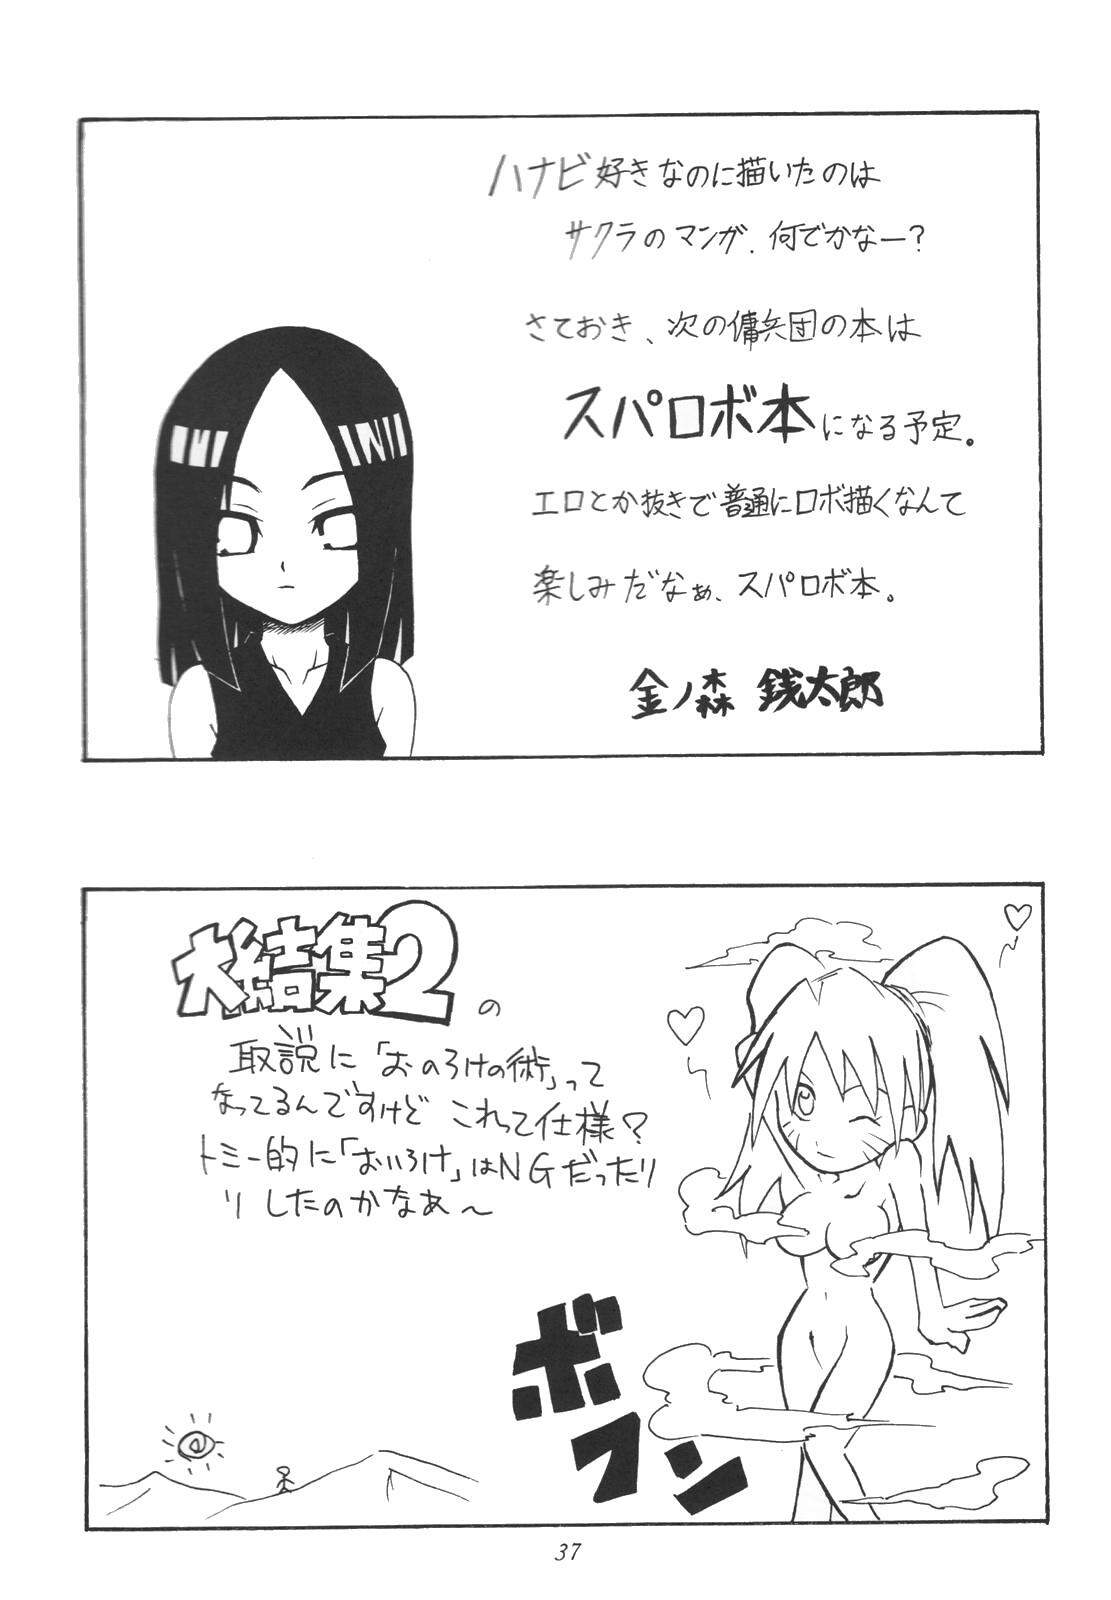 ハナビ好きなのに描いたのは
サクラのマンガ、何でかなー?
さておき、次の傭兵団の本は
スパロボ本になる予定。
エロとか抜きで普通にロボ描くなんて
楽しみだなぁ、スパロボ本。
金ノ森 銭太郎
大結集2の
取説に「おのろけの術」って
なってるんですけど これって仕様?
トミー的に「おいろけ」はNGだったり
リ したのかなあ〜
ボフン
37